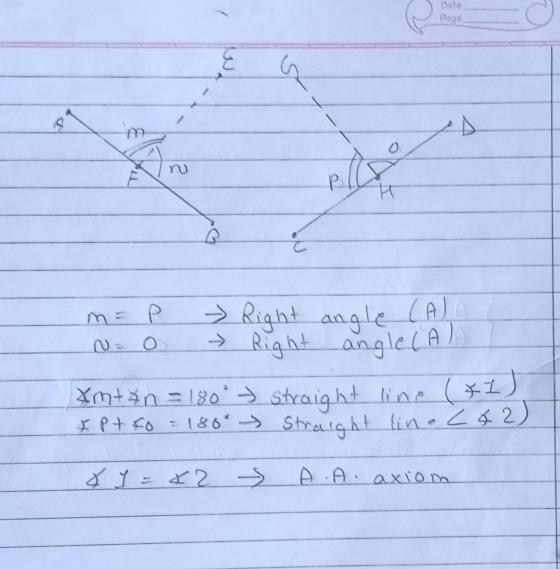 Date
Page
E
G
A
m
n
F
B
D
o
P
H
C
m = P → Right angle (A)
n = O → Right angle (A)
∡m+∡n = 180° → straight line (∡1)
∡P+∡o = 180° → straight line (∡2)
∡1 = ∡2 → A.A. axiom